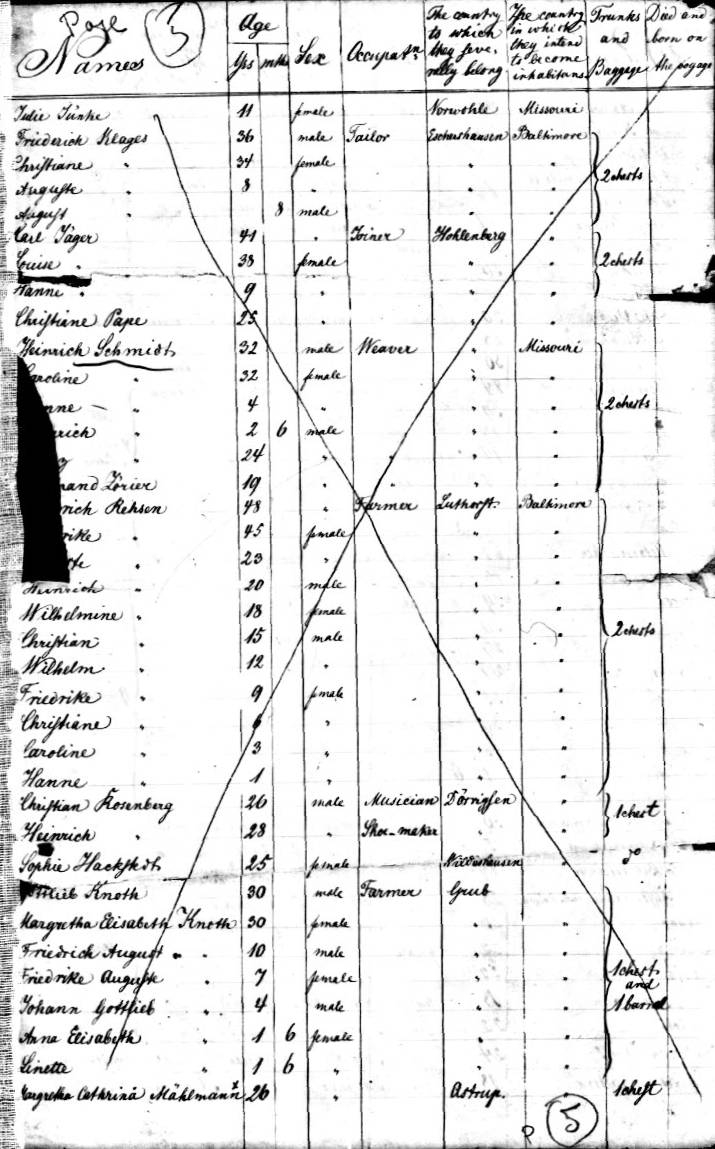 Page 3
Names Age Yrs mths Sex Occupatn: The country to which they severally belong The country in which they intend to become inhabitans Trunks and Baggage Died and born on the voyage
Julie Tünke 11 female Vorwohle Missouri
Friederich Klages 36 male Tailor Eschershausen Baltimore
Christiane " 34 female " "
Auguste " 8 " " " 2 chests
August " 8 male " "
Carl Jäger 41 " Joiner Hohlenberg "
Louise " 38 female " " 2 chests
Hanne " 9 " " "
Christiane Pape 25 " " "
Heinrich Schmidt 32 male Weaver " Missouri
Caroline " 32 female " "
nne " 4 " " " 2 chests
rich " 2 6 male " "
" 24 " " " "
nand Zörier 19 " " " "
rich Rehsen 48 " Farmer Luthorst. Baltimore
rike " 45 female " "
" 23 " " "
Heinrich " 20 male " "
Wilhelmine " 18 female " "
Christian " 15 male " " 2 chests
Wilhelm " 12 " " "
Friedrike " 9 female " "
Christiane " 6 " " "
Caroline " 3 " " "
Hanne " 1 " " "
Christian Rosenberg 26 male Musician Dörrigsen " 1 chest
Heinrich " 28 " Shoe-maker " "
Sophie Hackstedt 25 female Wildeshausen " do
Gottlieb Knoth 30 male Farmer Grub "
Margretha Elisabeth Knoth 30 female " "
Friedrich August " " 10 male " "
Friedrike Auguste " 7 female " " 1 chest and
Johann Gottlieb " 4 male " " 1 barrel
Anna Elisabeth " 1 6 female " "
Linette " 1 6 " " "
Margretha Cathrina Mählmann 26 " Astrup. " 1 chest
5